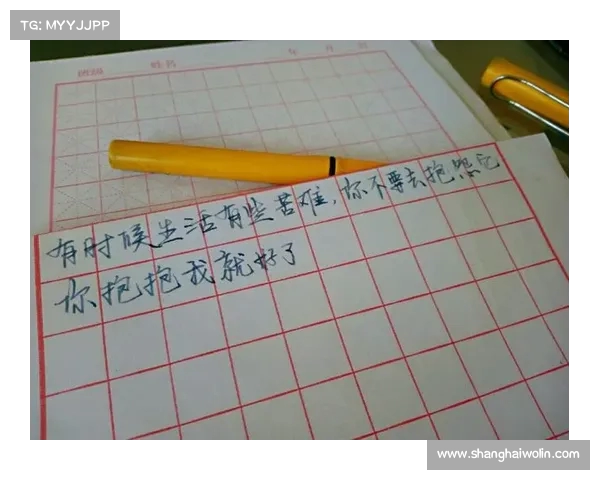 TG: MYYJJPP
年 月 日
姓名
有时候生活有些苦难，你不要去抱怨它
你抱抱我就好了
www.shanghaiwolin.com